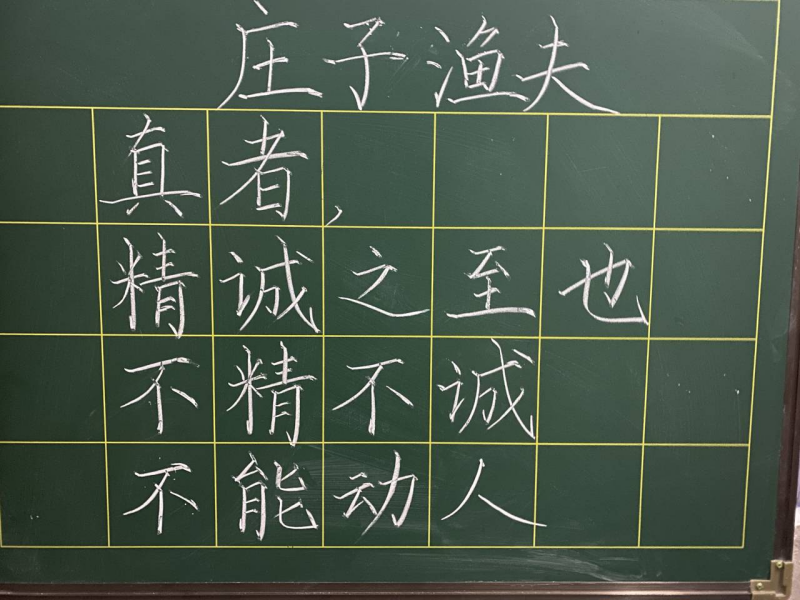 庄子渔夫
真者,
精诚之至也
不精不诚
不能动人